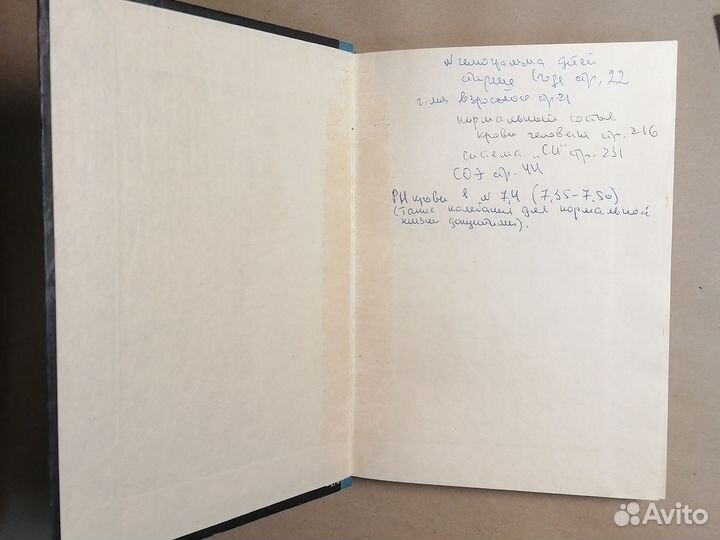 N гемограмма детей
старше 1 года стр. 22
г-ма взрослого стр. 21
нормальный состав
крови человека стр. 216
система „СИ" стр. 231
СОЭ стр. 44
РН крови в N 7,4 (7,35-7,50)
(такие колебания для нормальной
жизни допустимы).
Avito